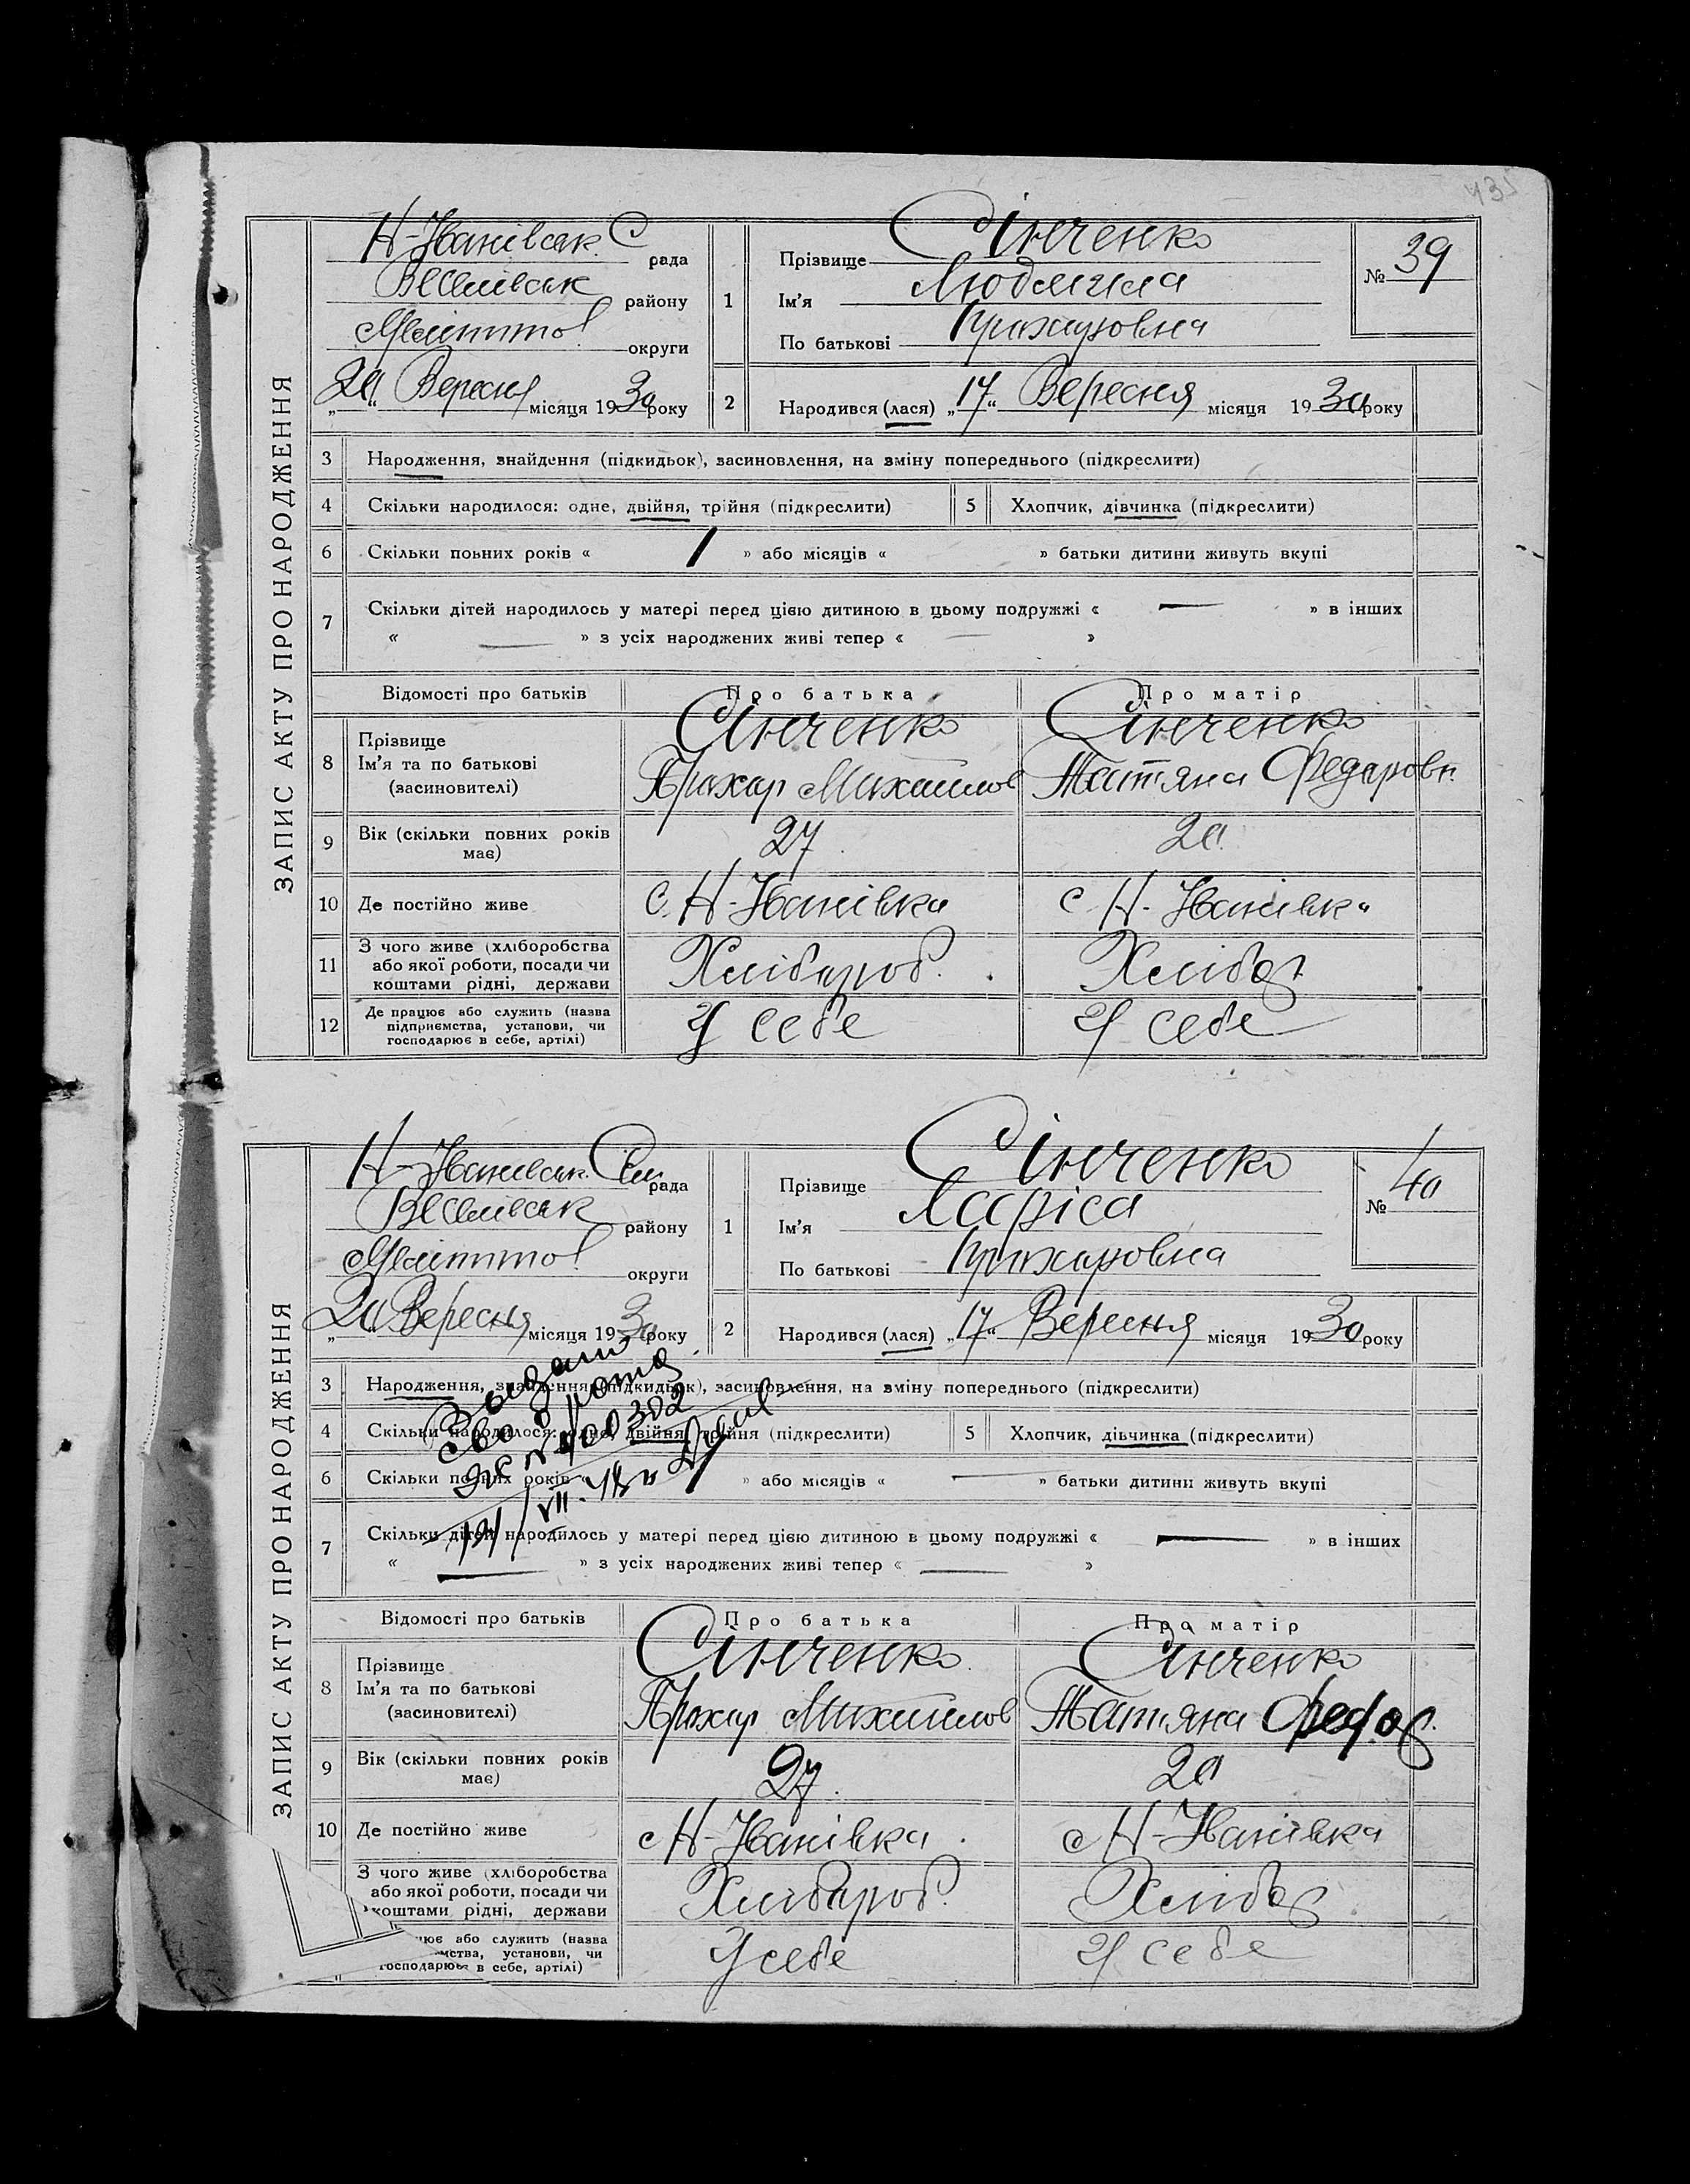 435
ЗАПИС АКТУ ПРО НАРОДЖЕННЯ
Н-Іванівськ. С рада
Веселівськ району
Меліттоп округи
„20“ Вересня місяця 1930 року
1 Прізвище Сінченко
Ім'я Людмила
По батькові Прохаровна
№ 39
2 Народився (лася) „17“ Вересня місяця 1930 року
3 Народження, знайдення (підкидьок), засиновлення, на зміну попереднього (підкреслити)
4 Скільки народилося: одне, двійня, трійня (підкреслити) 5 Хлопчик, дівчинка (підкреслити)
6 Скільки повних років « 1 » або місяців « » батьки дитини живуть вкупі
7 Скільки дітей народилось у матері перед цією дитиною в цьому подружжі « — » в інших
« — » з усіх народжених живі тепер « — »
Відомості про батьків Про батька Про матір
8 Прізвище Сінченко Сінченко
Ім'я та по батькові Прохар Михайлов Татяна Федаровн.
(засиновителі)
9 Вік (скільки повних років має) 27 20
10 Де постійно живе с. Н-Іванівка с Н-Іванівка
11 З чого живе (хліборобства або якої роботи, посади чи коштами рідні, держави Хлібароб. Хлібор
12 Де працює або служить (назва підприємства, установи, чи господарює в себе, артілі) У себе У себе
ЗАПИС АКТУ ПРО НАРОДЖЕННЯ
Н-Іванівськ. Сіл. рада
Веселівськ району
Меліттоп округи
„20“ Вересня місяця 1930 року
1 Прізвище Сінченко
Ім'я Лариса
По батькові Прохаровна
№ 40
2 Народився (лася) „17“ Вересня місяця 1930 року
3 Народження, знайдення (підкидьок), засиновлення, на зміну попереднього (підкреслити)
4 Скільки народилося: одне, двійня, трійня (підкреслити) 5 Хлопчик, дівчинка (підкреслити)
6 Скільки повних років « » або місяців « — » батьки дитини живуть вкупі
7 Скільки дітей народилось у матері перед цією дитиною в цьому подружжі « — » в інших
« — » з усіх народжених живі тепер « — »
Відомості про батьків Про батька Про матір
8 Прізвище Сінченко Сінченко
Ім'я та по батькові Прохар Михайлов Татяна Федор.
(засиновителі)
9 Вік (скільки повних років має) 27 20
10 Де постійно живе с Н-Іванівка с Н-Іванівка
З чого живе (хліборобства або якої роботи, посади чи коштами рідні, держави Хлібароб. Хлібор
або служить (назва установи, чи господарює в себе, артілі) У себе У себе